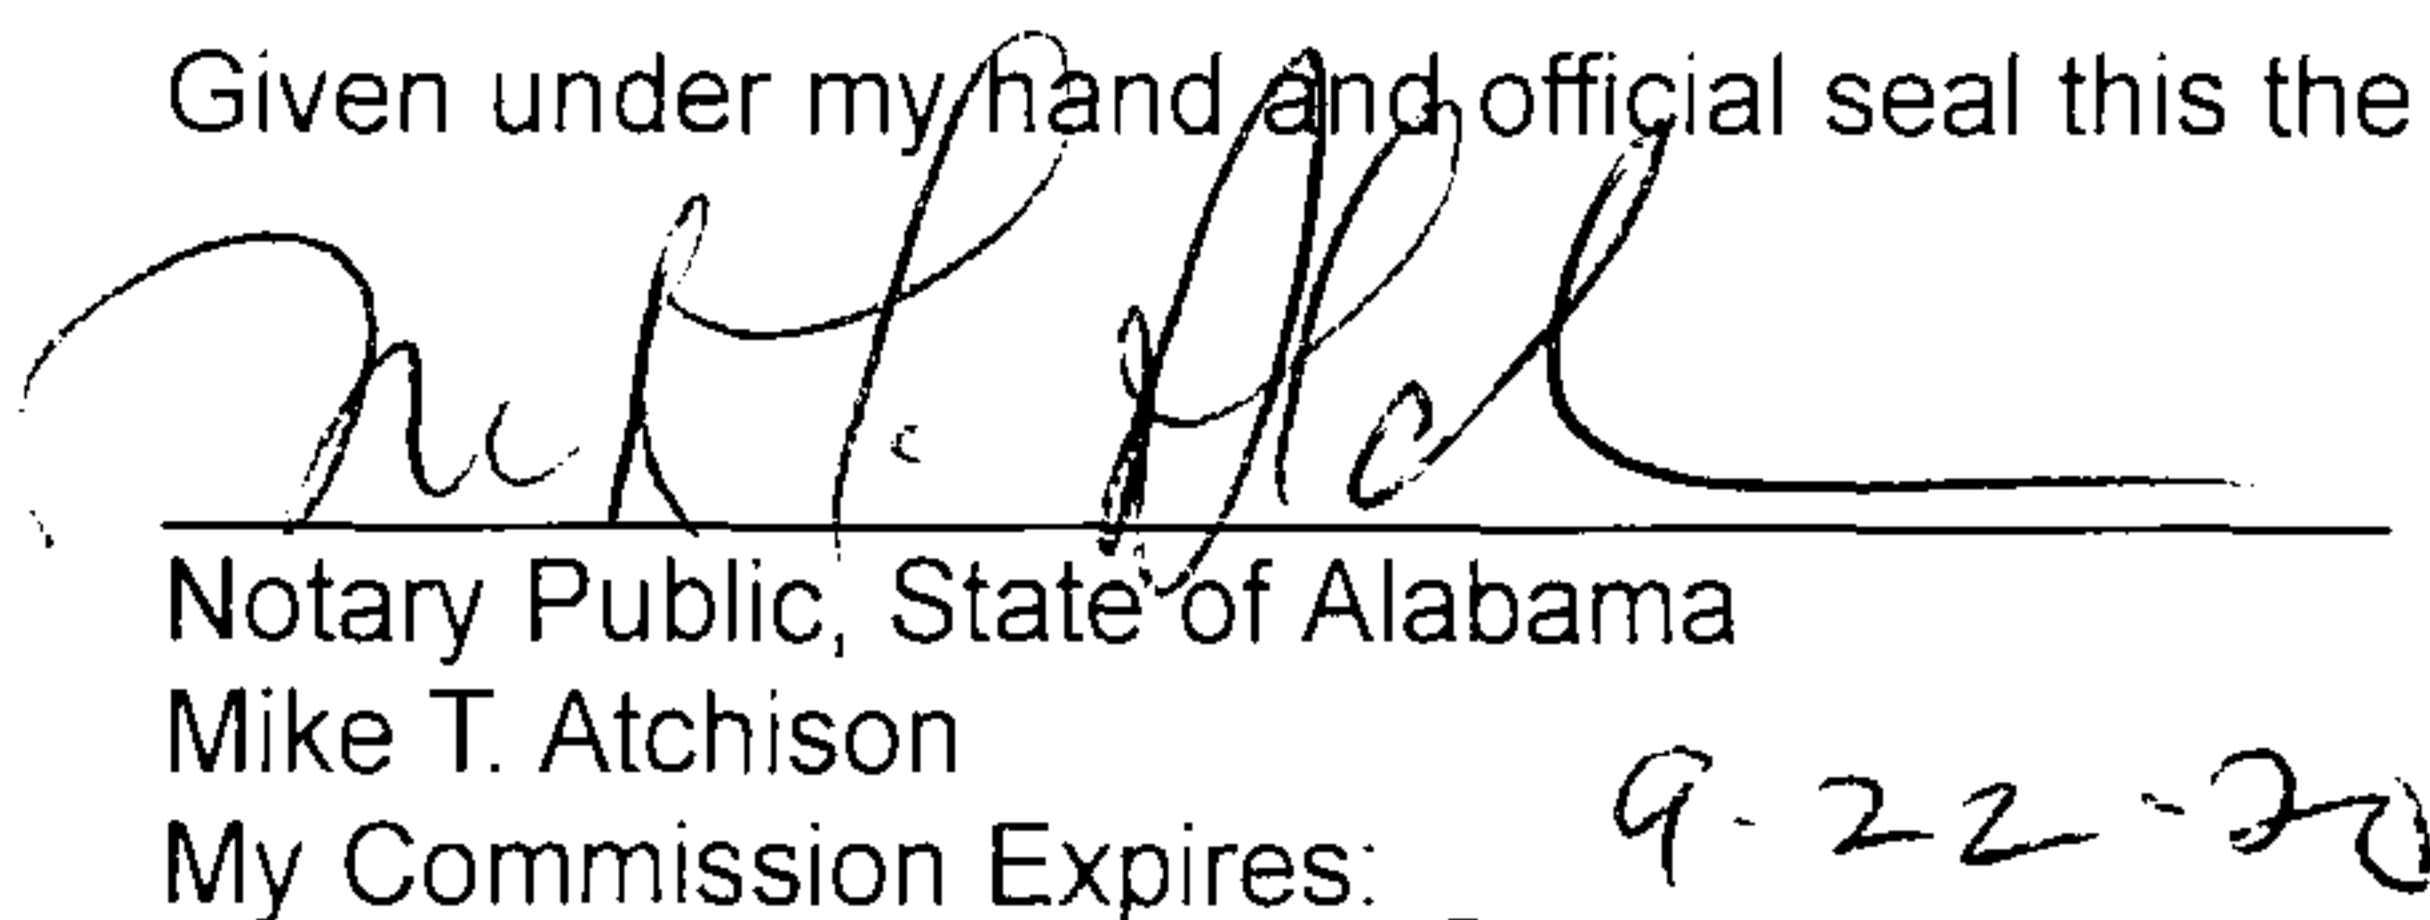 Given under my hand and official seal this the
Notary Public, State of Alabama
Mike T. Atchison
My Commission Expires: 9-22-20